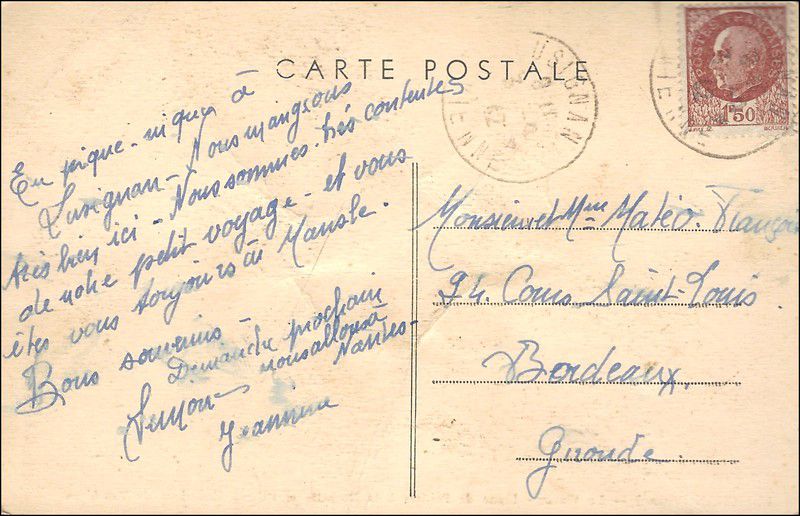 CARTE POSTALE
En pique-nique à
Lusignan - Nous mangeons
très bien ici - Nous sommes très contentes
de notre petit voyage - et vous
êtes vous toujours à Mansle.
Bons souvenirs -
Demanche prochain
nous allons à
Nantes -
Jeannine
USIGNAN
VIENNE
1F50
Monsieur et Mme Matéo. François
94. Cours Saint-Louis.
Bordeaux.
Gironde.